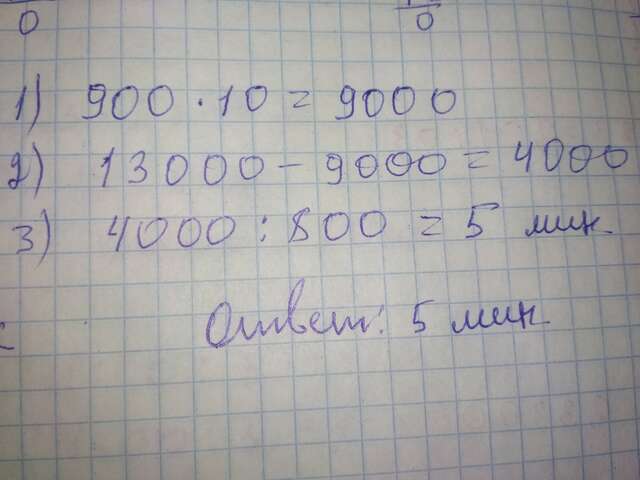 0 0
1) 900 · 10 = 9000
2) 13000 - 9000 = 4000
3) 4000 : 800 = 5 мин
Ответ: 5 мин